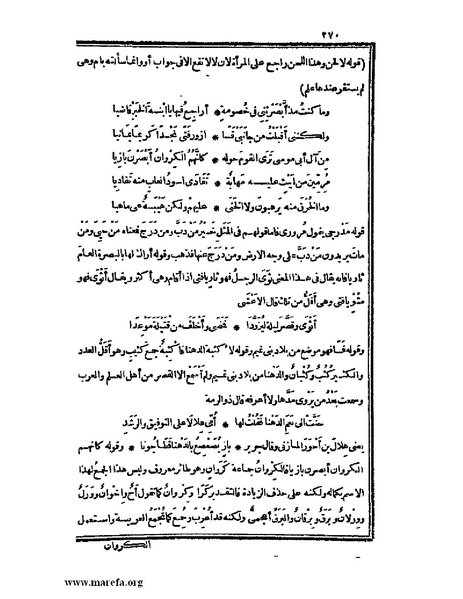 ٢٧٠
(قوله لالحن وهذا اللحن راجع على المرأة لان لا لا تقع الا فى جواب أو وانما سألته بام وهى
لم يستقر عندها علم)
وما كنت مذ أبصرتنى فى خصومة * أراجع فيها يا ابنة الخير قاضيا
ولكننى أقبلت من جانبى قسا * أزور فتى نجدا كريما يمانيا
من آل أبى موسى ترى القوم حوله * كأنهم الكروان أبصرن بازيا
مرمين من ليث عليه مهابة * تفادى أسود الغاب منه تفاديا
وما الخرق منه يرهبون ولا الخنى * عليهم ولكن هيبة هى ماهيا
قوله مدرجى يقول مرورى فاما قولهم فى المثل خير من دب ومن درج فمعناه من حيى ومن
مات يريدون من دب على وجه الارض ومن درج عنها فذهب وقوله أراك لها بالبصرة العام
ثاويا فانه يقال فى هذا المعنى ثوى الرجل فهو ثاو يافتى اذا أقام وهى أكثر ويقال أثوى فهو
مثو يافتى وهى أقل من تلك قال الاعشى
أثوى وقصر ليلة ليزودا * فمضى وأخلف من قتيلة موعدا
وقوله قسا فهو موضع من بلاد بنى تميم وقوله لا كثبة الدهنا فأكثبة جمع كثيب وهو أقل العدد
والكثير كثب وكثبان والدهنا من بلاد بنى تميم ولم أسمع الا القصر من أهل العلم والعرب
وسمعت بعد من يروى مدها ولا أعرفه قال ذو الرمة
حنت الى نعم الدهنا فقلت لها * أمى هلالا على التوفيق والرشد
يعنى هلال بن أحوز المازنى وقال جرير * باز يصعصع بالدهنا قطا جونا * وقوله كأنهم
الكروان أبصرن بازيا فالكروان جماعة كروان وهو طائر معروف وليس هذا الجمع لهذا
الاسم بكماله ولكنه على حذف الزيادة فالتقدير كرا وكروان كما تقول أخ واخوان وورل
وورلان وبرق وبرقان والبرق أعجمى ولكنه قد أعرب وجمع كما تجمع العربية واستعمل
الكروان
www.marefa.org